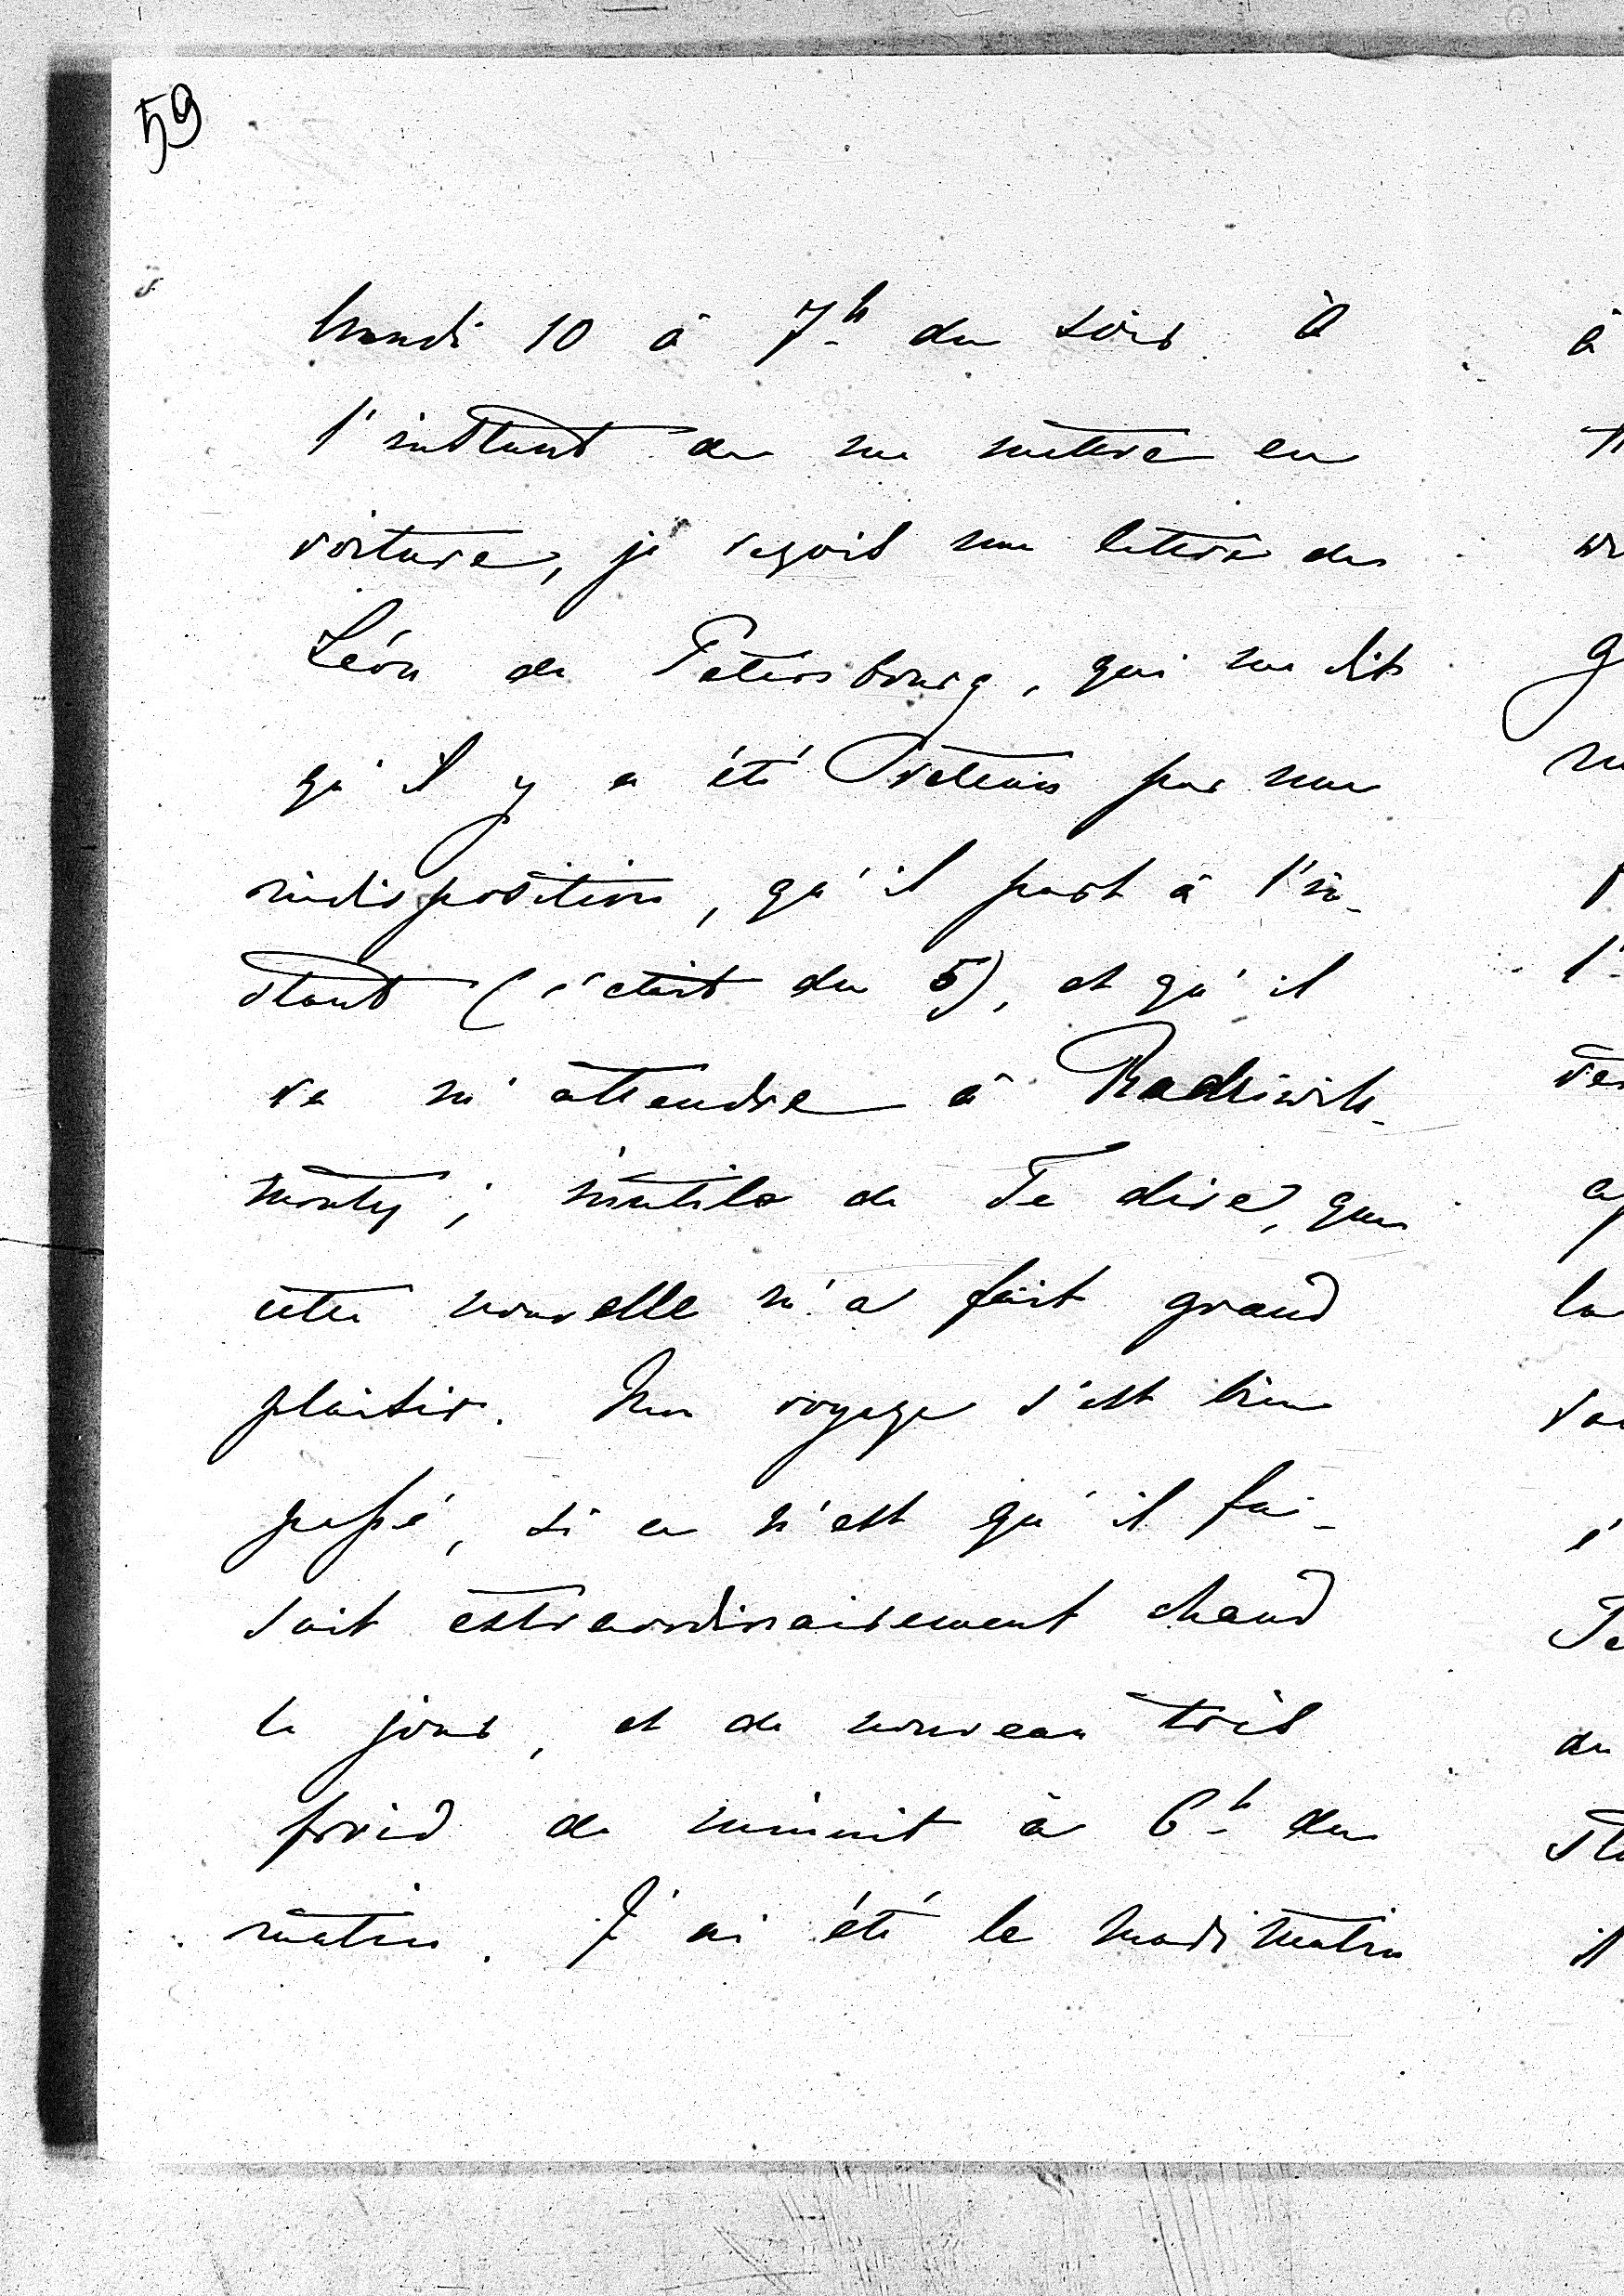 59
lundi 10 à 7h du soir. A
l'instant de me mettre en
voiture, je reçois une lettre de
Léon de Pétersbourg, qui me dit
qu'il y a été retenu par une
indisposition, qu'il part à l'in-
stant (c'était du 5), et qu'il
va m'attendre à Radziwil-
monty; inutile de Te dire, que
cette nouvelle m'a fait grand
plaisir. Mon voyage s'est bien
passé, si ce n'est qu'il fai-
sait extraordinairement chaud
le jour, et de nouveau très
froid de minuit à 6h du
matin. J'ai été le mardi matin